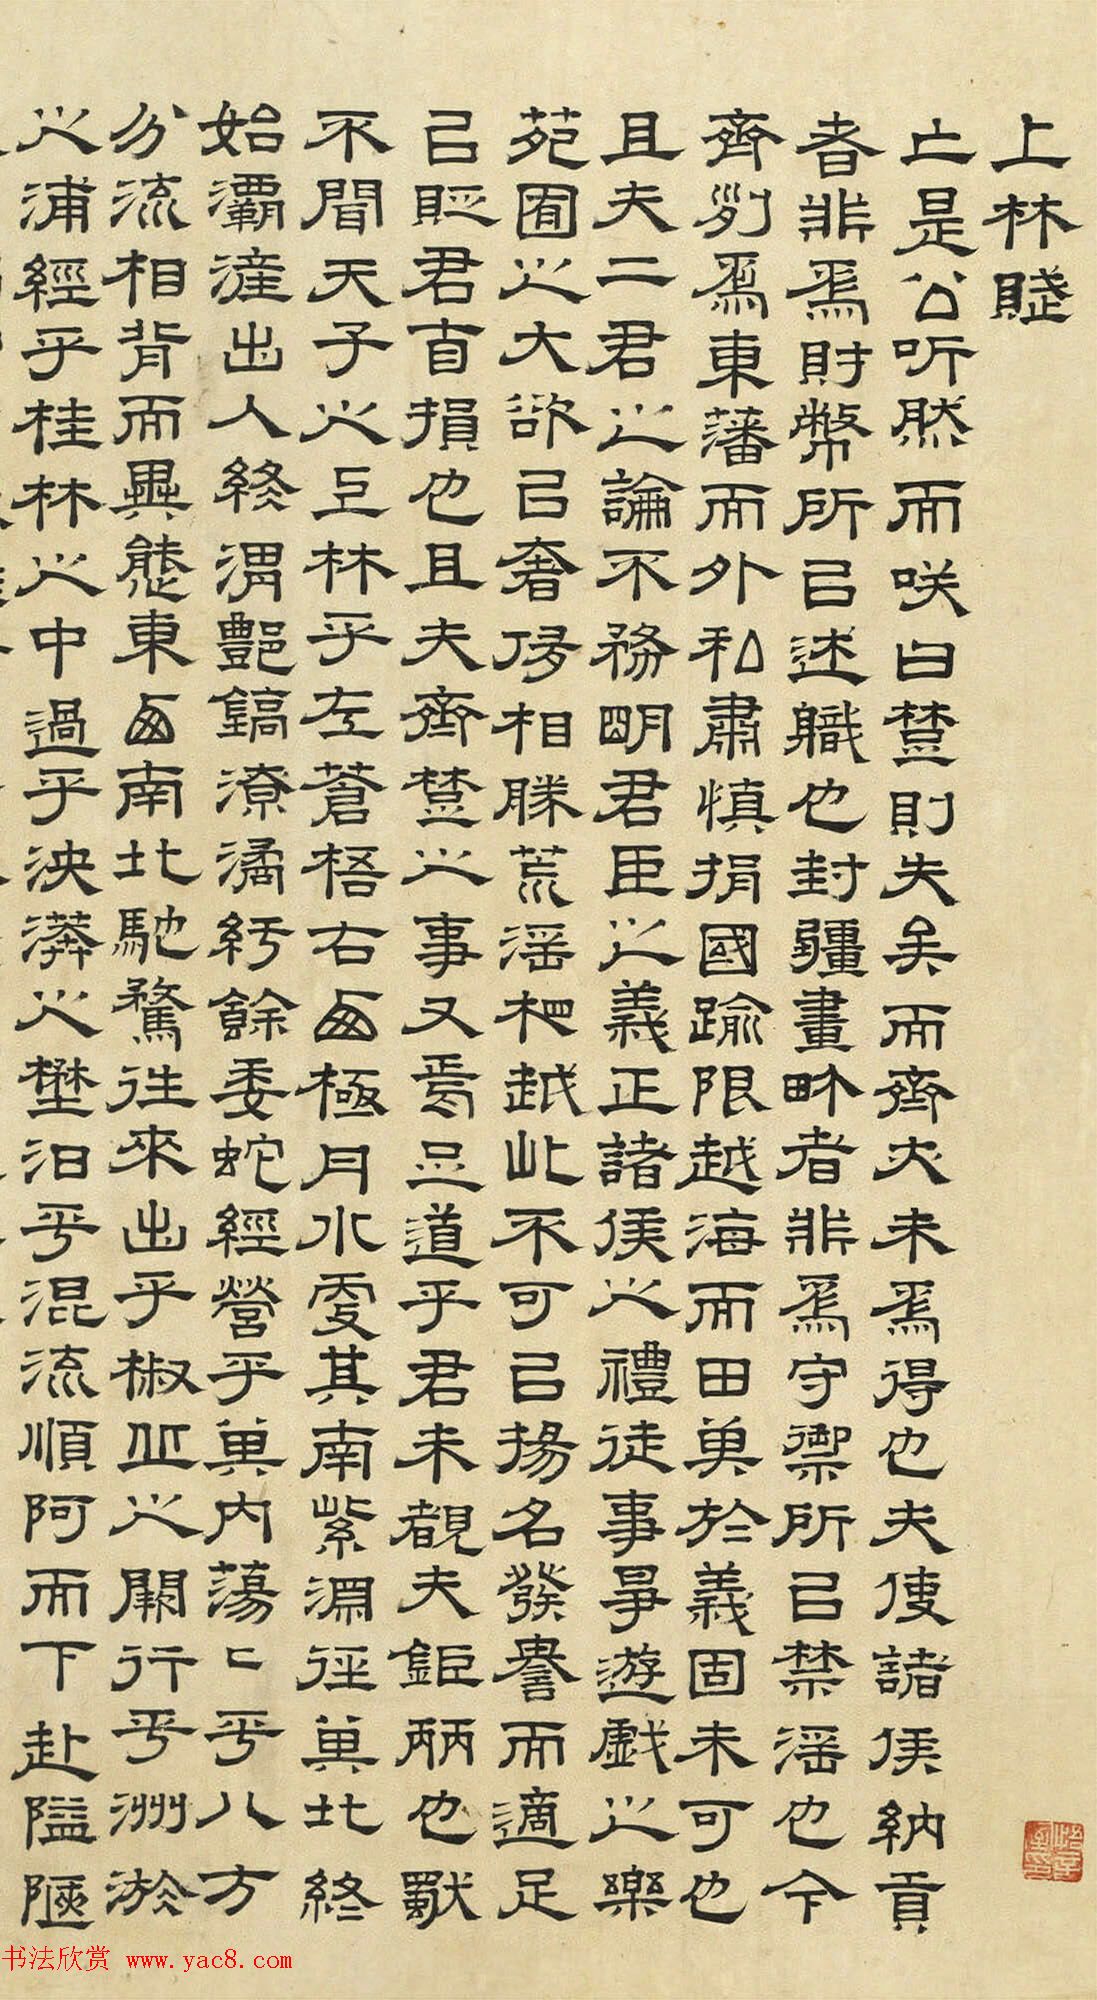 上林賦
亡是公听然而咲曰楚則失矣而齊亦未爲得也夫使諸侯納貢
者非爲財幣所以述職也封疆畫畍者非爲守禦所以禁淫也今
齊列爲東藩而外私肅慎捐國踰限越海而田其於義固未可也
且夫二君之論不務明君臣之義正諸侯之禮徒事爭遊戲之樂
苑囿之大欲以奢侈相勝荒淫相越此不可以揚名發譽而適足
以貶君自損也且夫齊楚之事又焉足道乎君未覩夫鉅麗也獨
不聞天子之上林乎左蒼梧右西極丹水更其南紫淵徑其北終
始灞滻出入終渭酆鎬潦潏紆餘委蛇經營乎其内蕩〻乎八方
分流相背而異態東西南北馳騖往來出乎椒丘之闕行乎洲淤
之浦經乎桂林之中過乎泱漭之壄汩乎混流順阿而下赴隘陿
书法欣赏 www.yac8.com